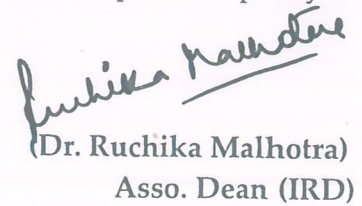 Ruchika Malhotra
(Dr. Ruchika Malhotra)
Asso. Dean (IRD)